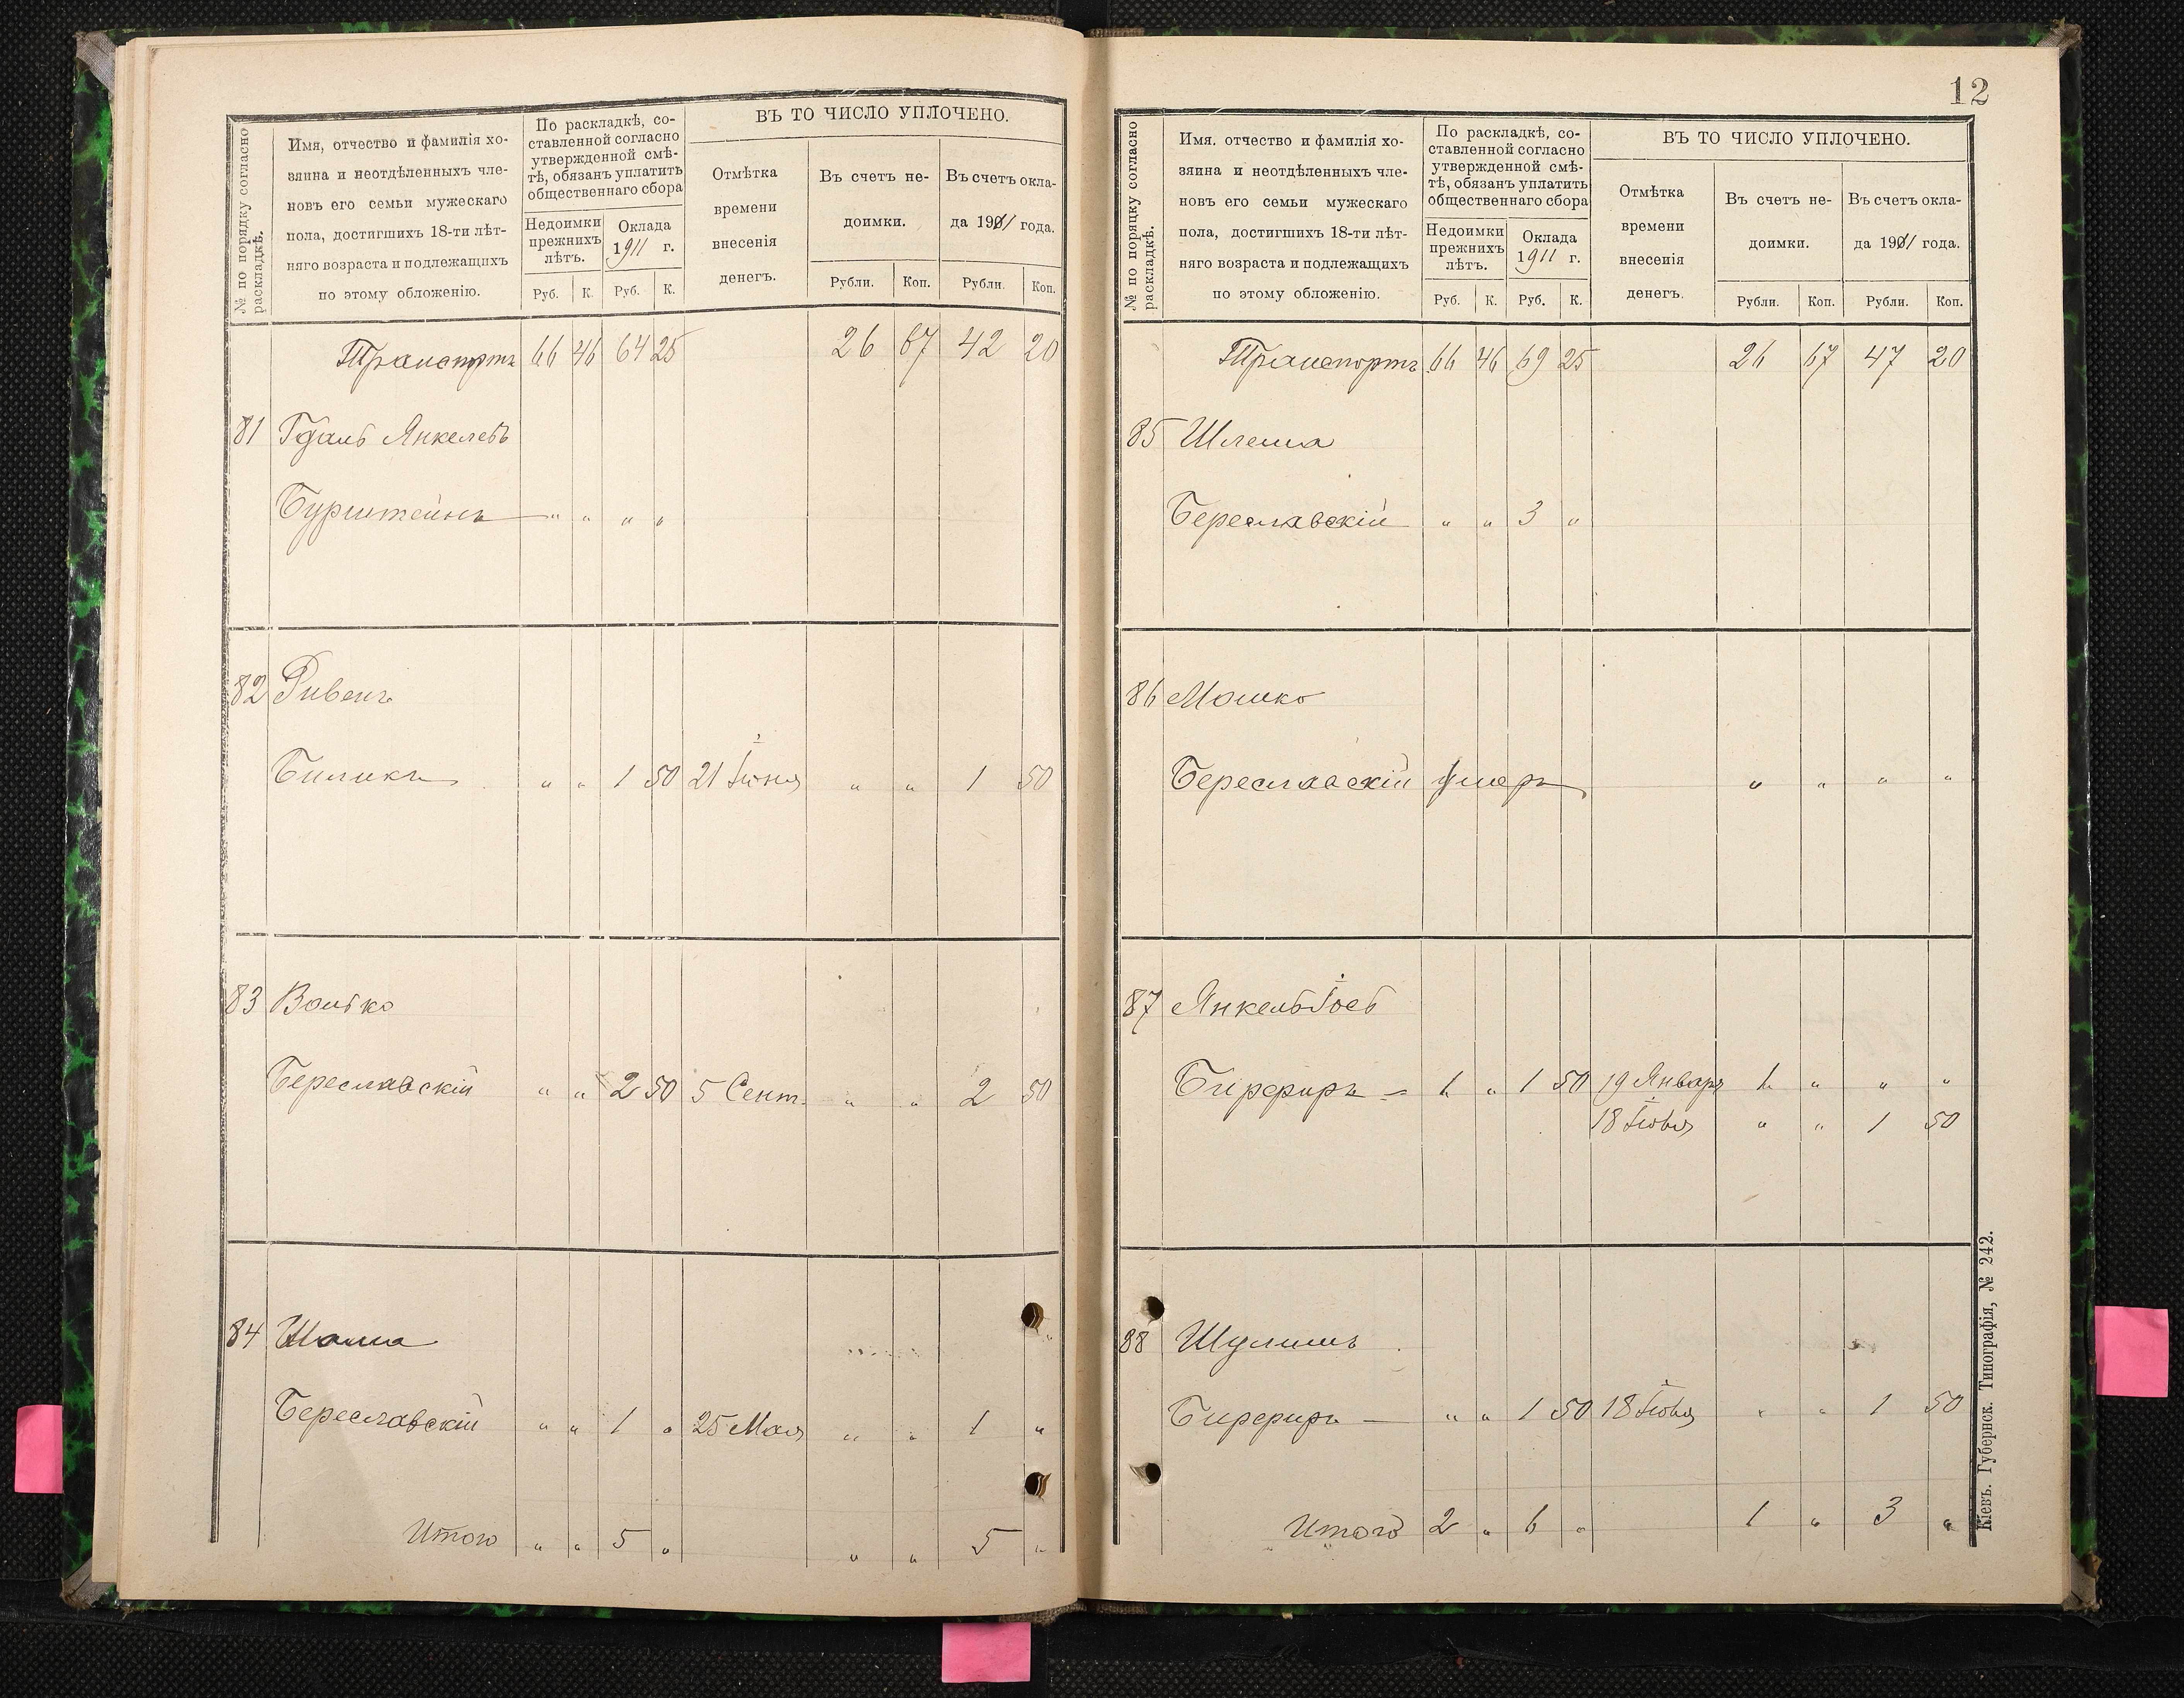 № по порядку согласно раскладкѣ.
Имя, отчество и фамилія хо-
зяина и неотдѣленныхъ чле-
новъ его семьи мужескаго
пола, достигшихъ 18-ти лѣт-
няго возраста и подлежащихъ
по этому обложенію.
По раскладкѣ, со-
ставленной согласно
утвержденной смѣ-
тѣ, обязанъ уплатить
общественнаго сбора
Недоимки
прежнихъ
лѣтъ.
Оклада
1911 г.
Руб. К. Руб. К.
ВЪ ТО ЧИСЛО УПЛОЧЕНО.
Отмѣтка
времени
внесенія
денегъ.
Въ счетъ не-
доимки.
Въ счетъ окла-
да 1911 года.
Рубли. Коп. Рубли. Коп.
Транспортъ 66 46 64 25 26 67 42 20
81 Гдаль Янкелевъ
Бурштейнъ — " " " "
82 Ривенъ
Биликъ " " 1 50 21 Іюня " " 1 50
83 Волько
Береславскій " " 2 50 5 Сент. " " 2 50
84 Шама
Береславскій " " 1 " 25 Мая " " 1 "
Итого " " 5 " " " 5 "
12
№ по порядку согласно раскладкѣ.
Имя. отчество и фамилія хо-
зяина и неотдѣленныхъ чле-
новъ его семьи мужескаго
пола, достигшихъ 18-ти лѣт-
няго возраста и подлежащихъ
по этому обложенію.
По раскладкѣ, со-
ставленной согласно
утвержденной смѣ-
тѣ, обязанъ уплатить
общественнаго сбора
Недоимки
прежнихъ
лѣтъ.
Оклада
1911 г.
Руб. К. Руб. К.
ВЪ ТО ЧИСЛО УПЛОЧЕНО.
Отмѣтка
времени
внесенія
денегъ.
Въ счетъ не-
доимки.
Въ счетъ окла-
да 1911 года.
Рубли. Коп. Рубли. Коп.
Транспортъ 66 46 69 25 26 67 47 20
85 Шлема
Береславскій " " 3 "
86 Мошко
Береславскій умеръ " " " "
87 Янкель Іось
Бирфиръ — 1 " 1 50 19 Января 1 " " "
18 Іюля " " 1 50
88 Шулимъ
Бирфиръ — " " 1 50 18 Іюля " " 1 50
Итого 2 " 6 " 1 " 3 "
Кіевъ. Губернск. Типографія, № 242.